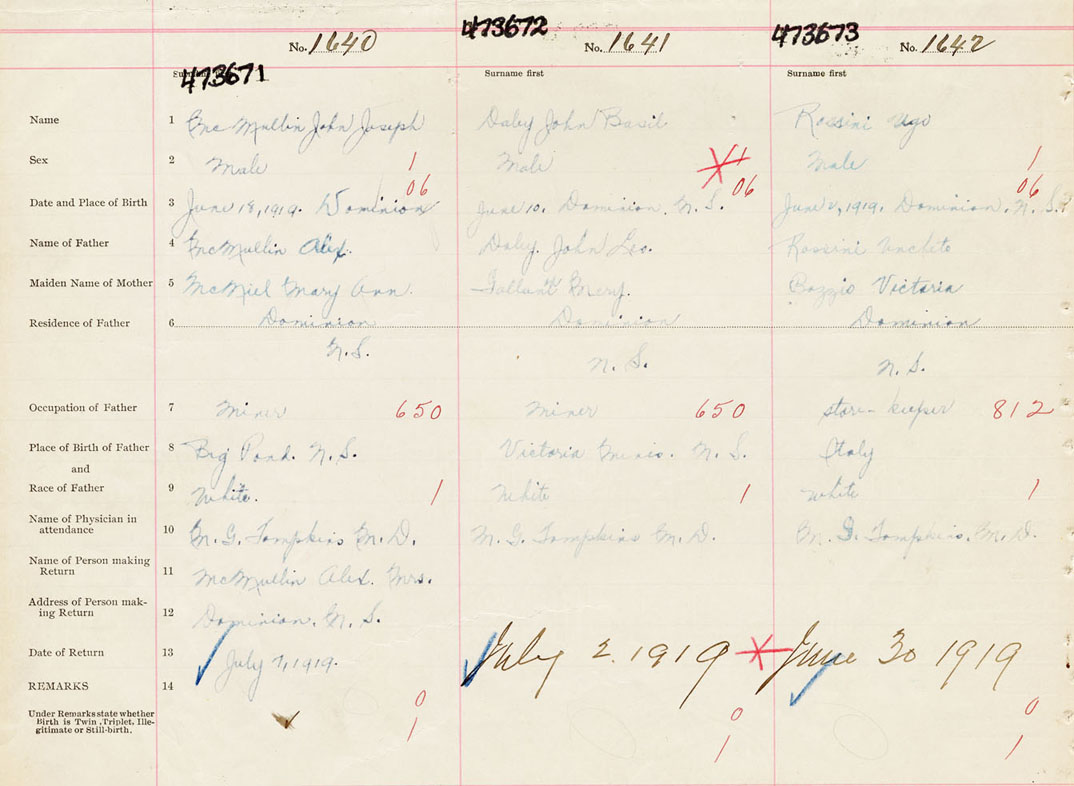 473672
473673
No. 1640 No. 1641 No. 1642
473671
Surname first Surname first
Name 1 McMullin John Joseph Daley John Basil Rossini Ugo
Sex 2 Male 1 Male 1 Male 1
06 06 06
Date and Place of Birth 3 June 18, 1919. Dominion June 10. Dominion. N.S. June 2, 1919. Dominion. N.S.
Name of Father 4 McMullin Alex. Daley. John Leo. Rossini
Maiden Name of Mother 5 McNiel Mary Ann. Gallant Mary. Bozzio Victoria
Residence of Father 6 Dominion Dominion Dominion
N.S. N.S. N.S.
Occupation of Father 7 Miner 650 Miner 650 store-keeper 812
Place of Birth of Father 8 Big Pond. N.S. Victoria Mines. N.S. Italy
and
Race of Father 9 White. 1 White 1 White 1
Name of Physician in
attendance 10 M.G. Tompkins M.D. M.G. Tompkins M.D. M.G. Tompkins. M.D.
Name of Person making
Return 11 McMullin Alex. Mrs.
Address of Person mak-
ing Return 12 Dominion. N.S.
Date of Return 13 July 7, 1919. July 2. 1919 June 30 1919
REMARKS 14
0 0 0
Under Remarks state whether
Birth is Twin, Triplet, Ille-
gitimate or Still-birth. 1 1 1